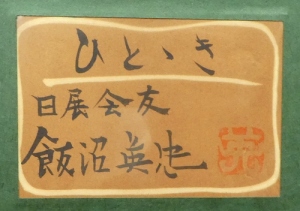 ひとゝき
日展会友
飯沼英忠